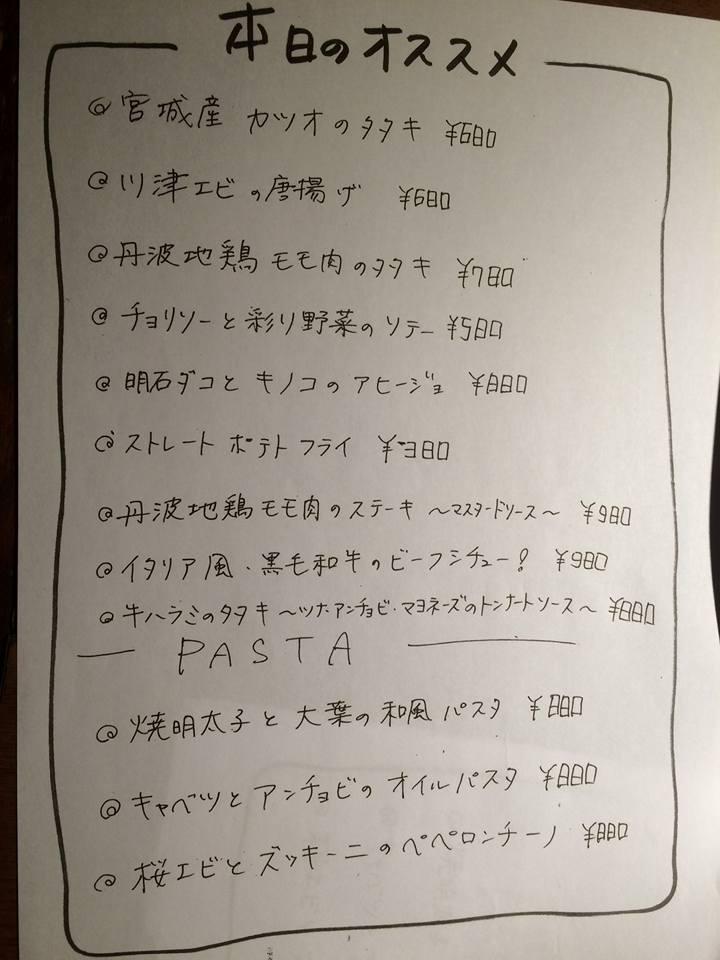 本日のオススメ
@宮城産 カツオのタタキ ¥680
@川津エビの唐揚げ ¥680
@丹波地鶏モモ肉のタタキ ¥780
@チョリソーと彩り野菜のソテー ¥580
@明石ダコとキノコのアヒージョ ¥880
@ストレートポテトフライ ¥380
@丹波地鶏モモ肉のステーキ ～マスタードソース～ ¥980
@イタリア風・黒毛和牛のビーフシチュー! ¥980
@牛ハラミのタタキ ～ツナ・アンチョビ・マヨネーズのトンナートソース～ ¥880
PASTA
@焼明太子と大葉の和風パスタ ¥880
@キャベツとアンチョビのオイルパスタ ¥880
@桜エビとズッキーニのペペロンチーノ ¥880